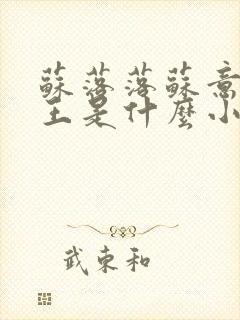 蘇落落蘇意
主是什麼小
武東和